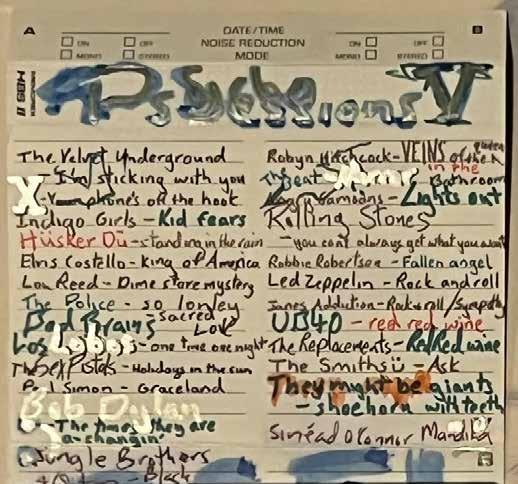 A
DATE/TIME
B
ON OFF
NOISE REDUCTION
ON OFF
MONO STEREO
MODE
MONO STEREO
Psychosessions V
The Velvet Underground
- I'm sticking with you
X - Your phone's off the hook
Indigo Girls - Kid fears
Hüsker Dü - standing in the rain
Elvis Costello - King of America
Lou Reed - Dime store mystery
The Police - so lonley
Bad Brains - sacred Love
Los Lobos - one time one night
The Sex Pistols - Holidays in the sun
Paul Simon - Graceland
Bob Dylan
- The times they are a-changin'
Jungle Brothers
- Black
Robyn Hitchcock - VEINS of the Queen
The Beat - in the Bathroom
Lights out
Rolling Stones
- you cant always get what you want
Robbie Robertson - Fallen angel
Led Zeppelin - Rock and roll
Janes Addiction - Rock & roll / Sympathy
UB40 - red red wine
The Replacements - Red Red wine
The Smiths - Ask
They might be giants
- shoehorn with teeth
Sinéad O'Connor Mandika